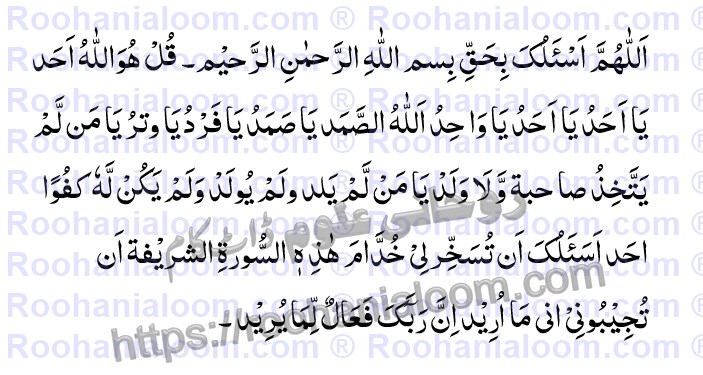 Roohanialoom.com ® Roohanialoom.com ®
اَللّٰهُمَّ اَسْئَلُکَ بِحَقِّ بِسم اللهِ الرَّحمٰنِ الرَّحیْم۔ قُلْ هُوَاللهُ اَحَد
یَا اَحَدُ یَا اَحَدُ یَا وَاحِدُ اَللهُ الصَّمَد یَا صَمَدُ یَا فَرْدُ یَا وِترُ یَا مَن لَّمْ
یَتَّخِذُ صاحبة وَّلَا وَلَدْ یَا مَنْ لَّمْ یَلد ولَمْ یُولَدْ وَلَمْ یَکُنْ لَّهٗ کَفُوًا
احَد اَسَئَلُکَ اَن تُسَخِّر لِیْ خُدَّامَ هٰذِهِ السُّورةِ الشریْفة اَن
تُجِیْبُونِیْ انی مَا اُرِیْد اِنَّ رَبَّکَ فَعَالٌ لِّمَا یُرِیْد۔
روحانی علوم ڈاٹ کام
https://roohanialoom.com